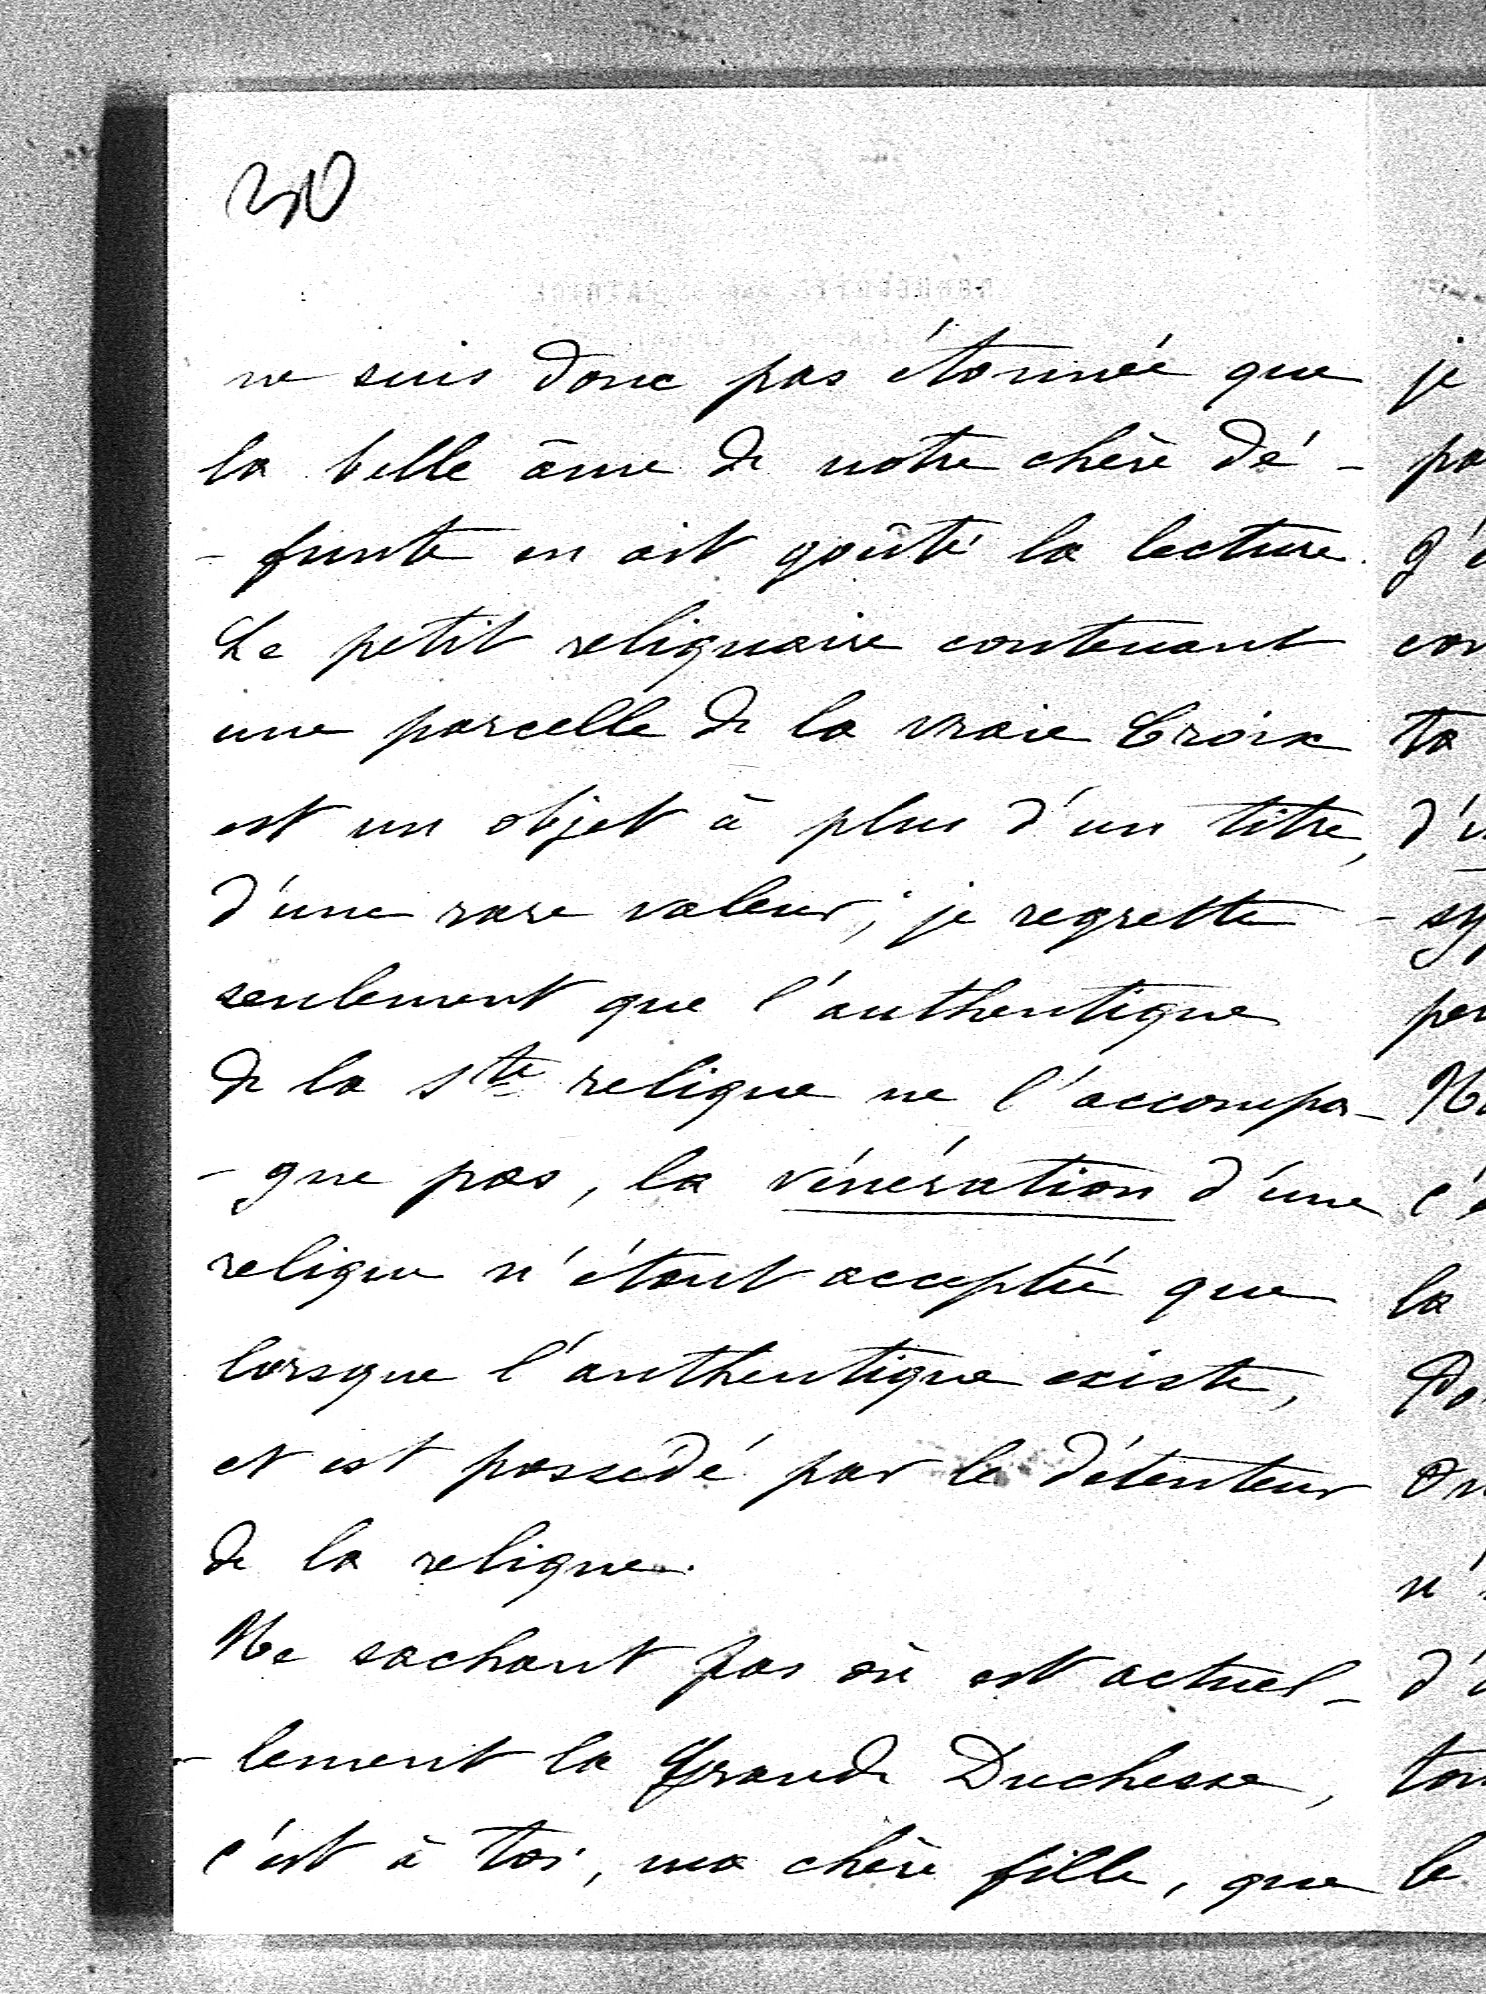 30
ne suis donc pas étonnée que
la belle âme de notre chère dé-
-funte en ait goûté la lecture.
Le petit reliquaire contenant
une parcelle de la vraie Croix
est un objet à plus d'un titre,
d'une rare valeur; je regrette
seulement que l'authentique
de la Ste relique ne l'accompa-
-gne pas, la vénération d'une
relique n'étant acceptée que
lorsque l'authentique existe,
et est possédé par le détenteur
de la relique.
Ne sachant pas où est actuel-
-lement la Grande Duchesse,
c'est à toi, ma chère fille, que
je
ta
la
le